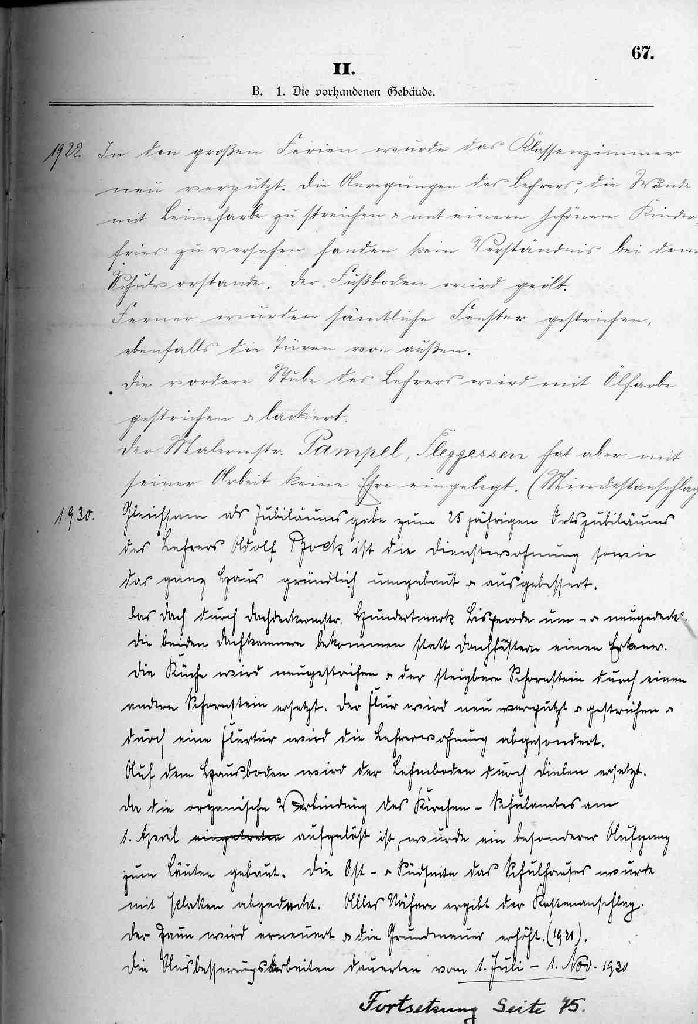 67.
II.
B. 1. Die vorhandenen Gebäude.
1922. In den großen Ferien wurde das Klassenzimmer
neu verputzt. Die Anregungen des Lehrers, die Wände
mit Leimfarbe zu streichen u. mit einem schönen Kinder
fries zu versehen fanden kein Verständnis bei dem
Schulvorstande. Der Fußboden wird geölt.
Ferner wurden sämtliche Fenster gestrichen,
ebenfalls die Türen von außen.
Die vordere Stube des Lehrers wird mit Ölfarbe
gestrichen u. lackiert.
Der Malermstr. Pampel, Fleggessen hat aber mit
seiner Arbeit keine Ehre eingelegt. (Mindestanschlag
1930. Gleichsam als Jubiläumsgabe zum 25 jährigen Ortsjubiläums
des Lehrers Adolf ist die Dienstwohnung sowie
das ganze Haus gründlich umgebaut u. ausgebessert.
Das Dach durch Dachdeckermstr. Hundertmark Bisperode um- u. neugedeckt
Die beiden Dachkammern bekommen statt Dachfenstern einen Erker.
Die Küche wird neugestrichen u. der steigbare Schornstein durch einen
andern Schornstein ersetzt. Der Flur wird neu verputzt u. gestrichen u.
durch eine Flurtür wird die Lehrerwohnung abgesondert.
Auf dem Hausboden wird der Lehmboden durch Dielen ersetzt.
Da die organische Verbindung des Kirchen- Schulamtes am
1. April aufgelöst ist, wurde ein besonderer Aufgang
zum Läuten gebaut. Die Ost- u. Südseite des Schulhauses wurde
mit abgedeckt. Alles Nähere ergibt der Kostenanschlag.
Der Zaun wird erneuert u. die Grundmauer erhöht. (1931).
Die Ausbesserungsarbeiten dauerten vom 1. Juli - 1. Nov. 1930
Fortsetzung Seite 75.